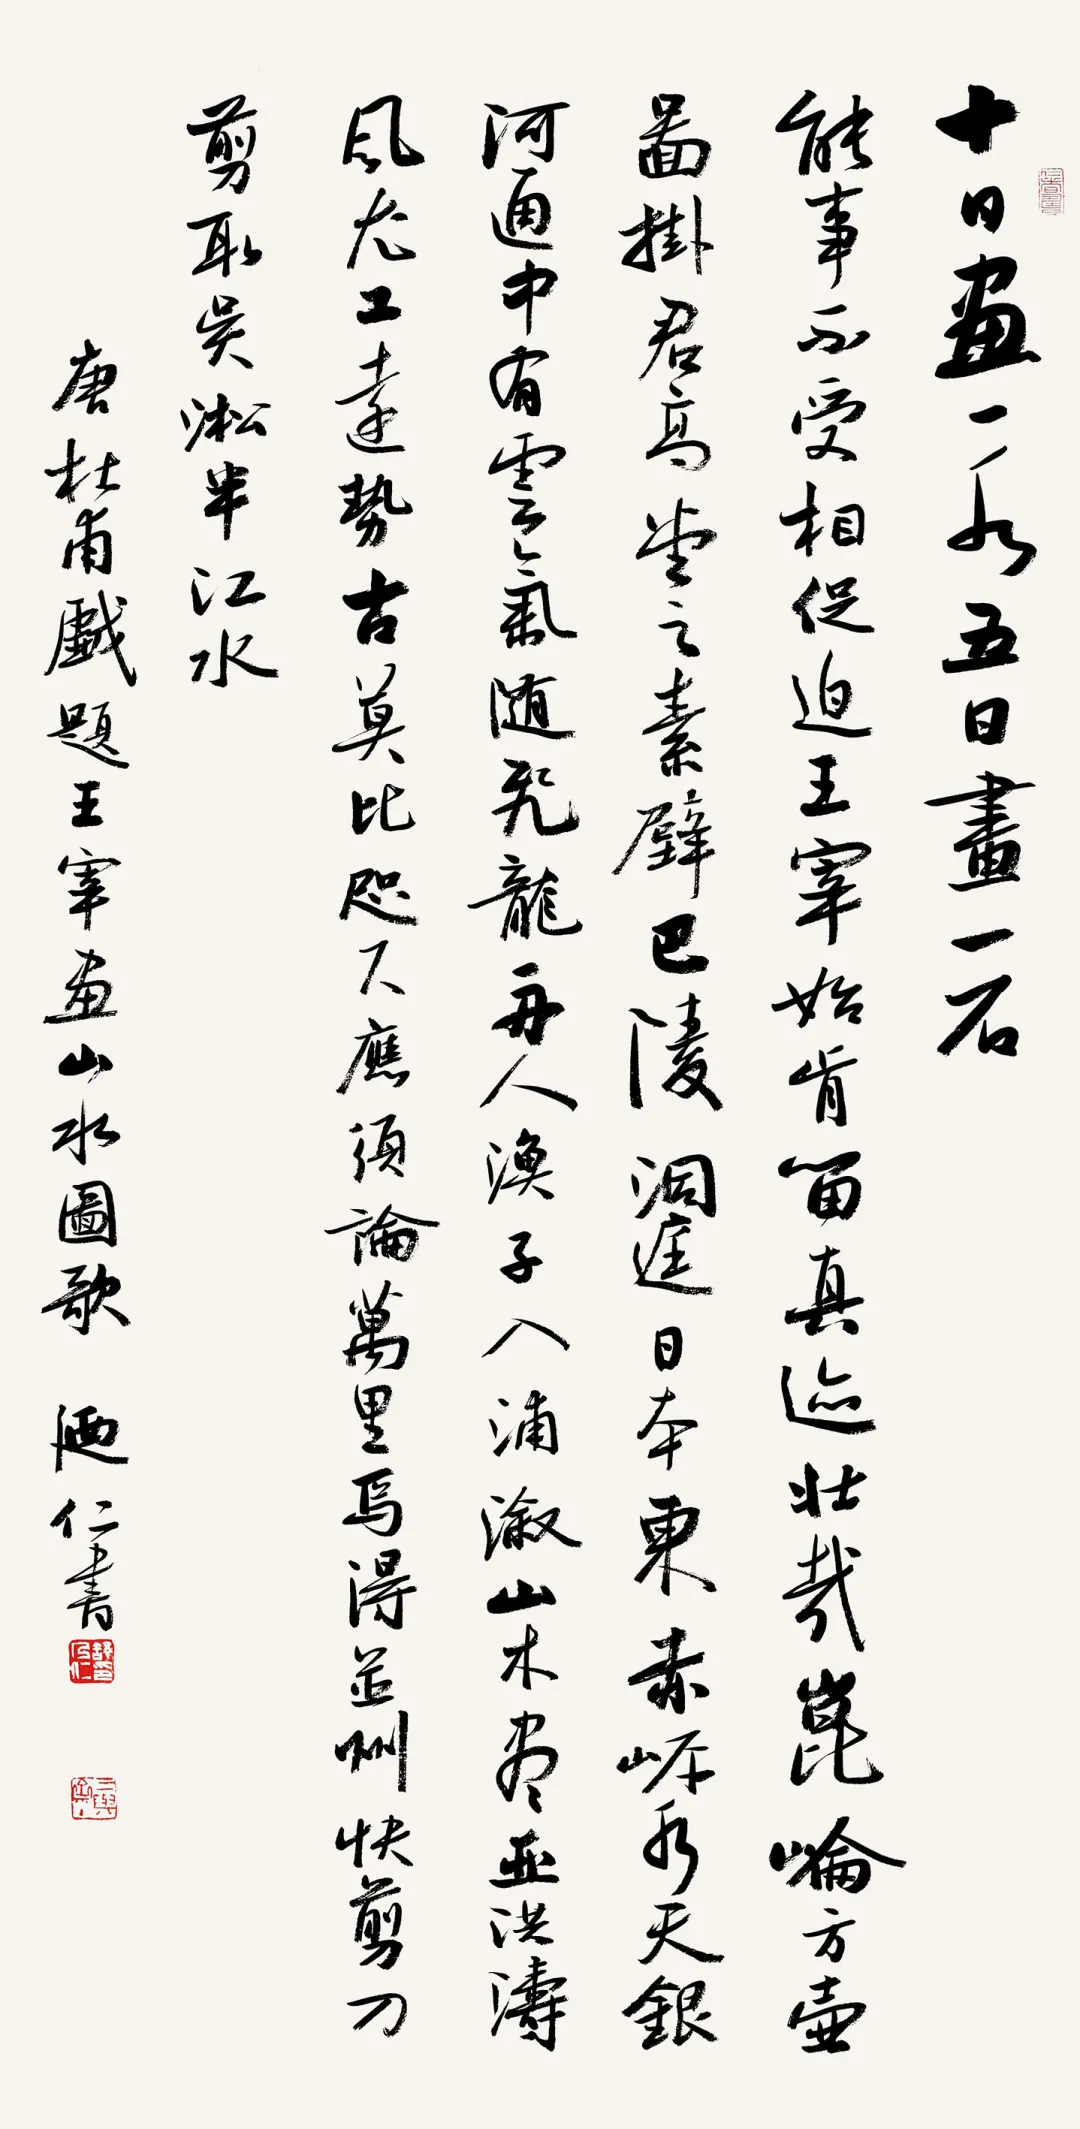 十日画一水五日畫一石
能事不受相促迫王宰始肯留真迹壯哉崑崙方壺
圖掛君高堂之素壁巴陵洞庭日本東赤岸水天銀
河通中有雲氣随飛龍舟人漁子入浦溆山木盡亞洪濤
風尤工遠勢古莫比咫尺應須論萬里焉得並州快剪刀
剪取吴淞半江水
唐杜甫戲題王宰画山水圖歌 迺仁書